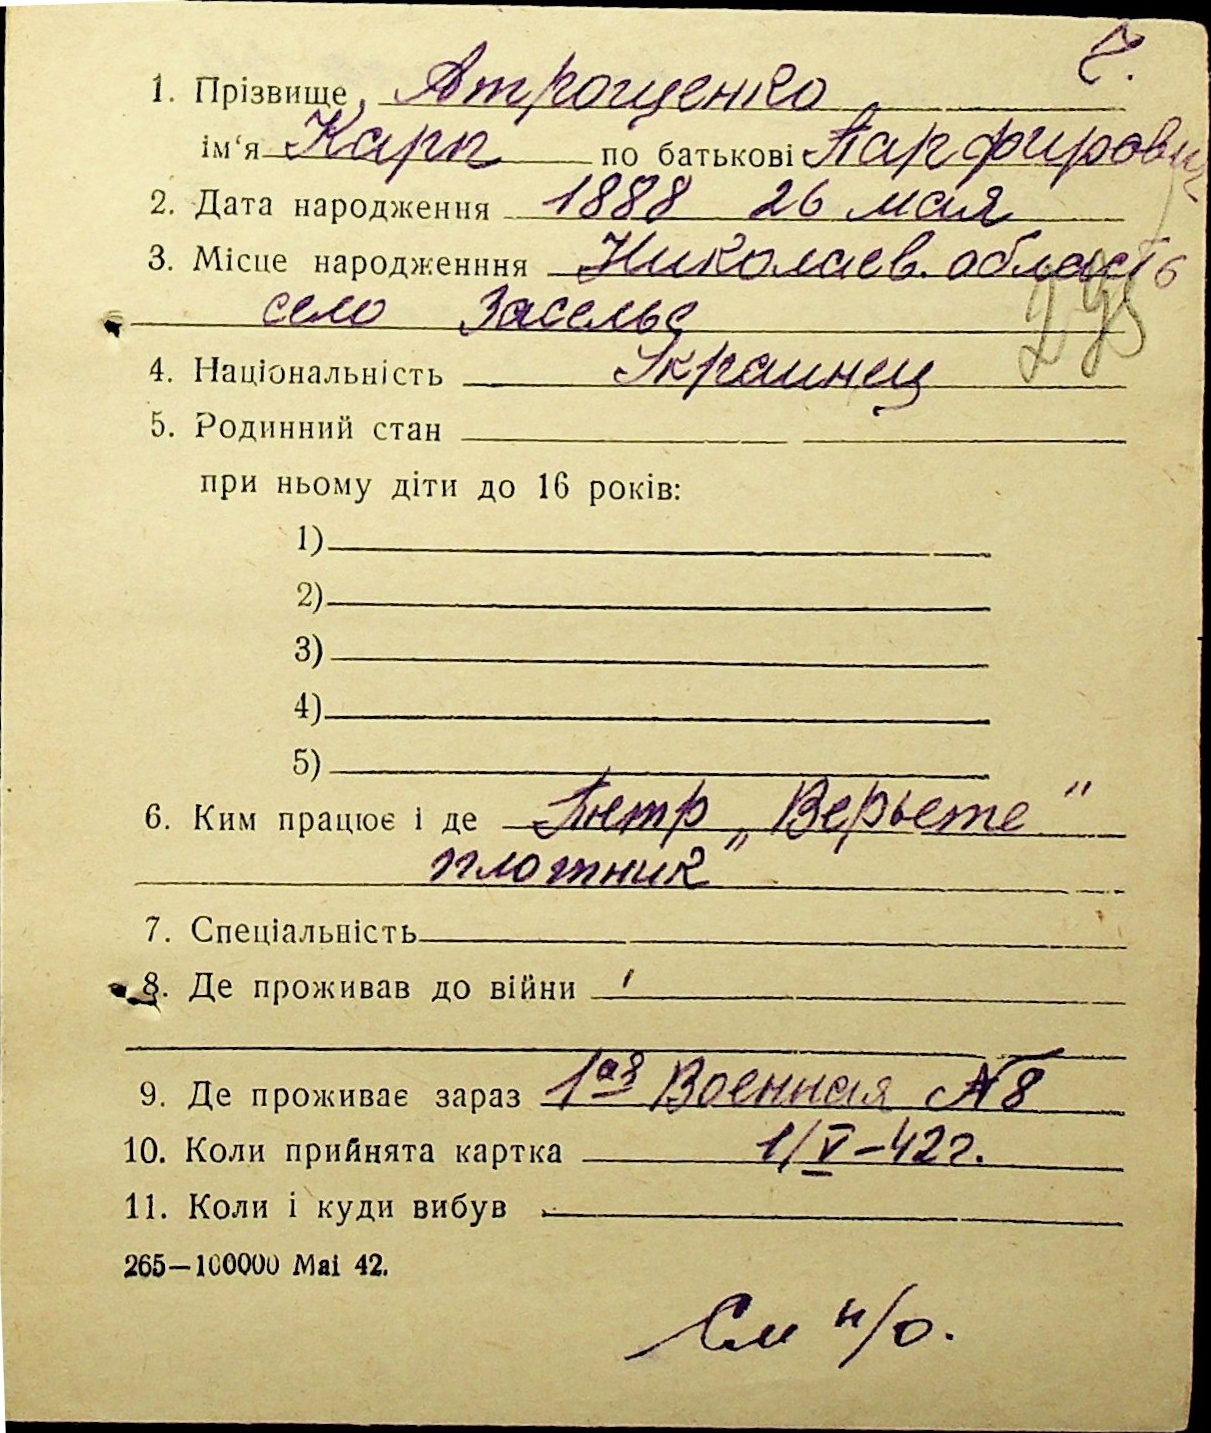 Ч.
1. Прізвище, Атрощенко
ім'я Карп по батькові Парфирович
2. Дата народження 1888 26 мая
3. Місце народженння Николаев. област
село Заселье
4. Національність Украинец
5. Родинний стан
при ньому діти до 16 років:
1)
2)
3)
4)
5)
6. Ким працює і де Театр „Верьете"
плотник
7. Спеціальність
8. Де проживав до війни
9. Де проживає зараз 1ая Военная №8
10. Коли прийнята картка 1/V-42г.
11. Коли і куди вибув
265—100000 Mai 42.
См н/о.